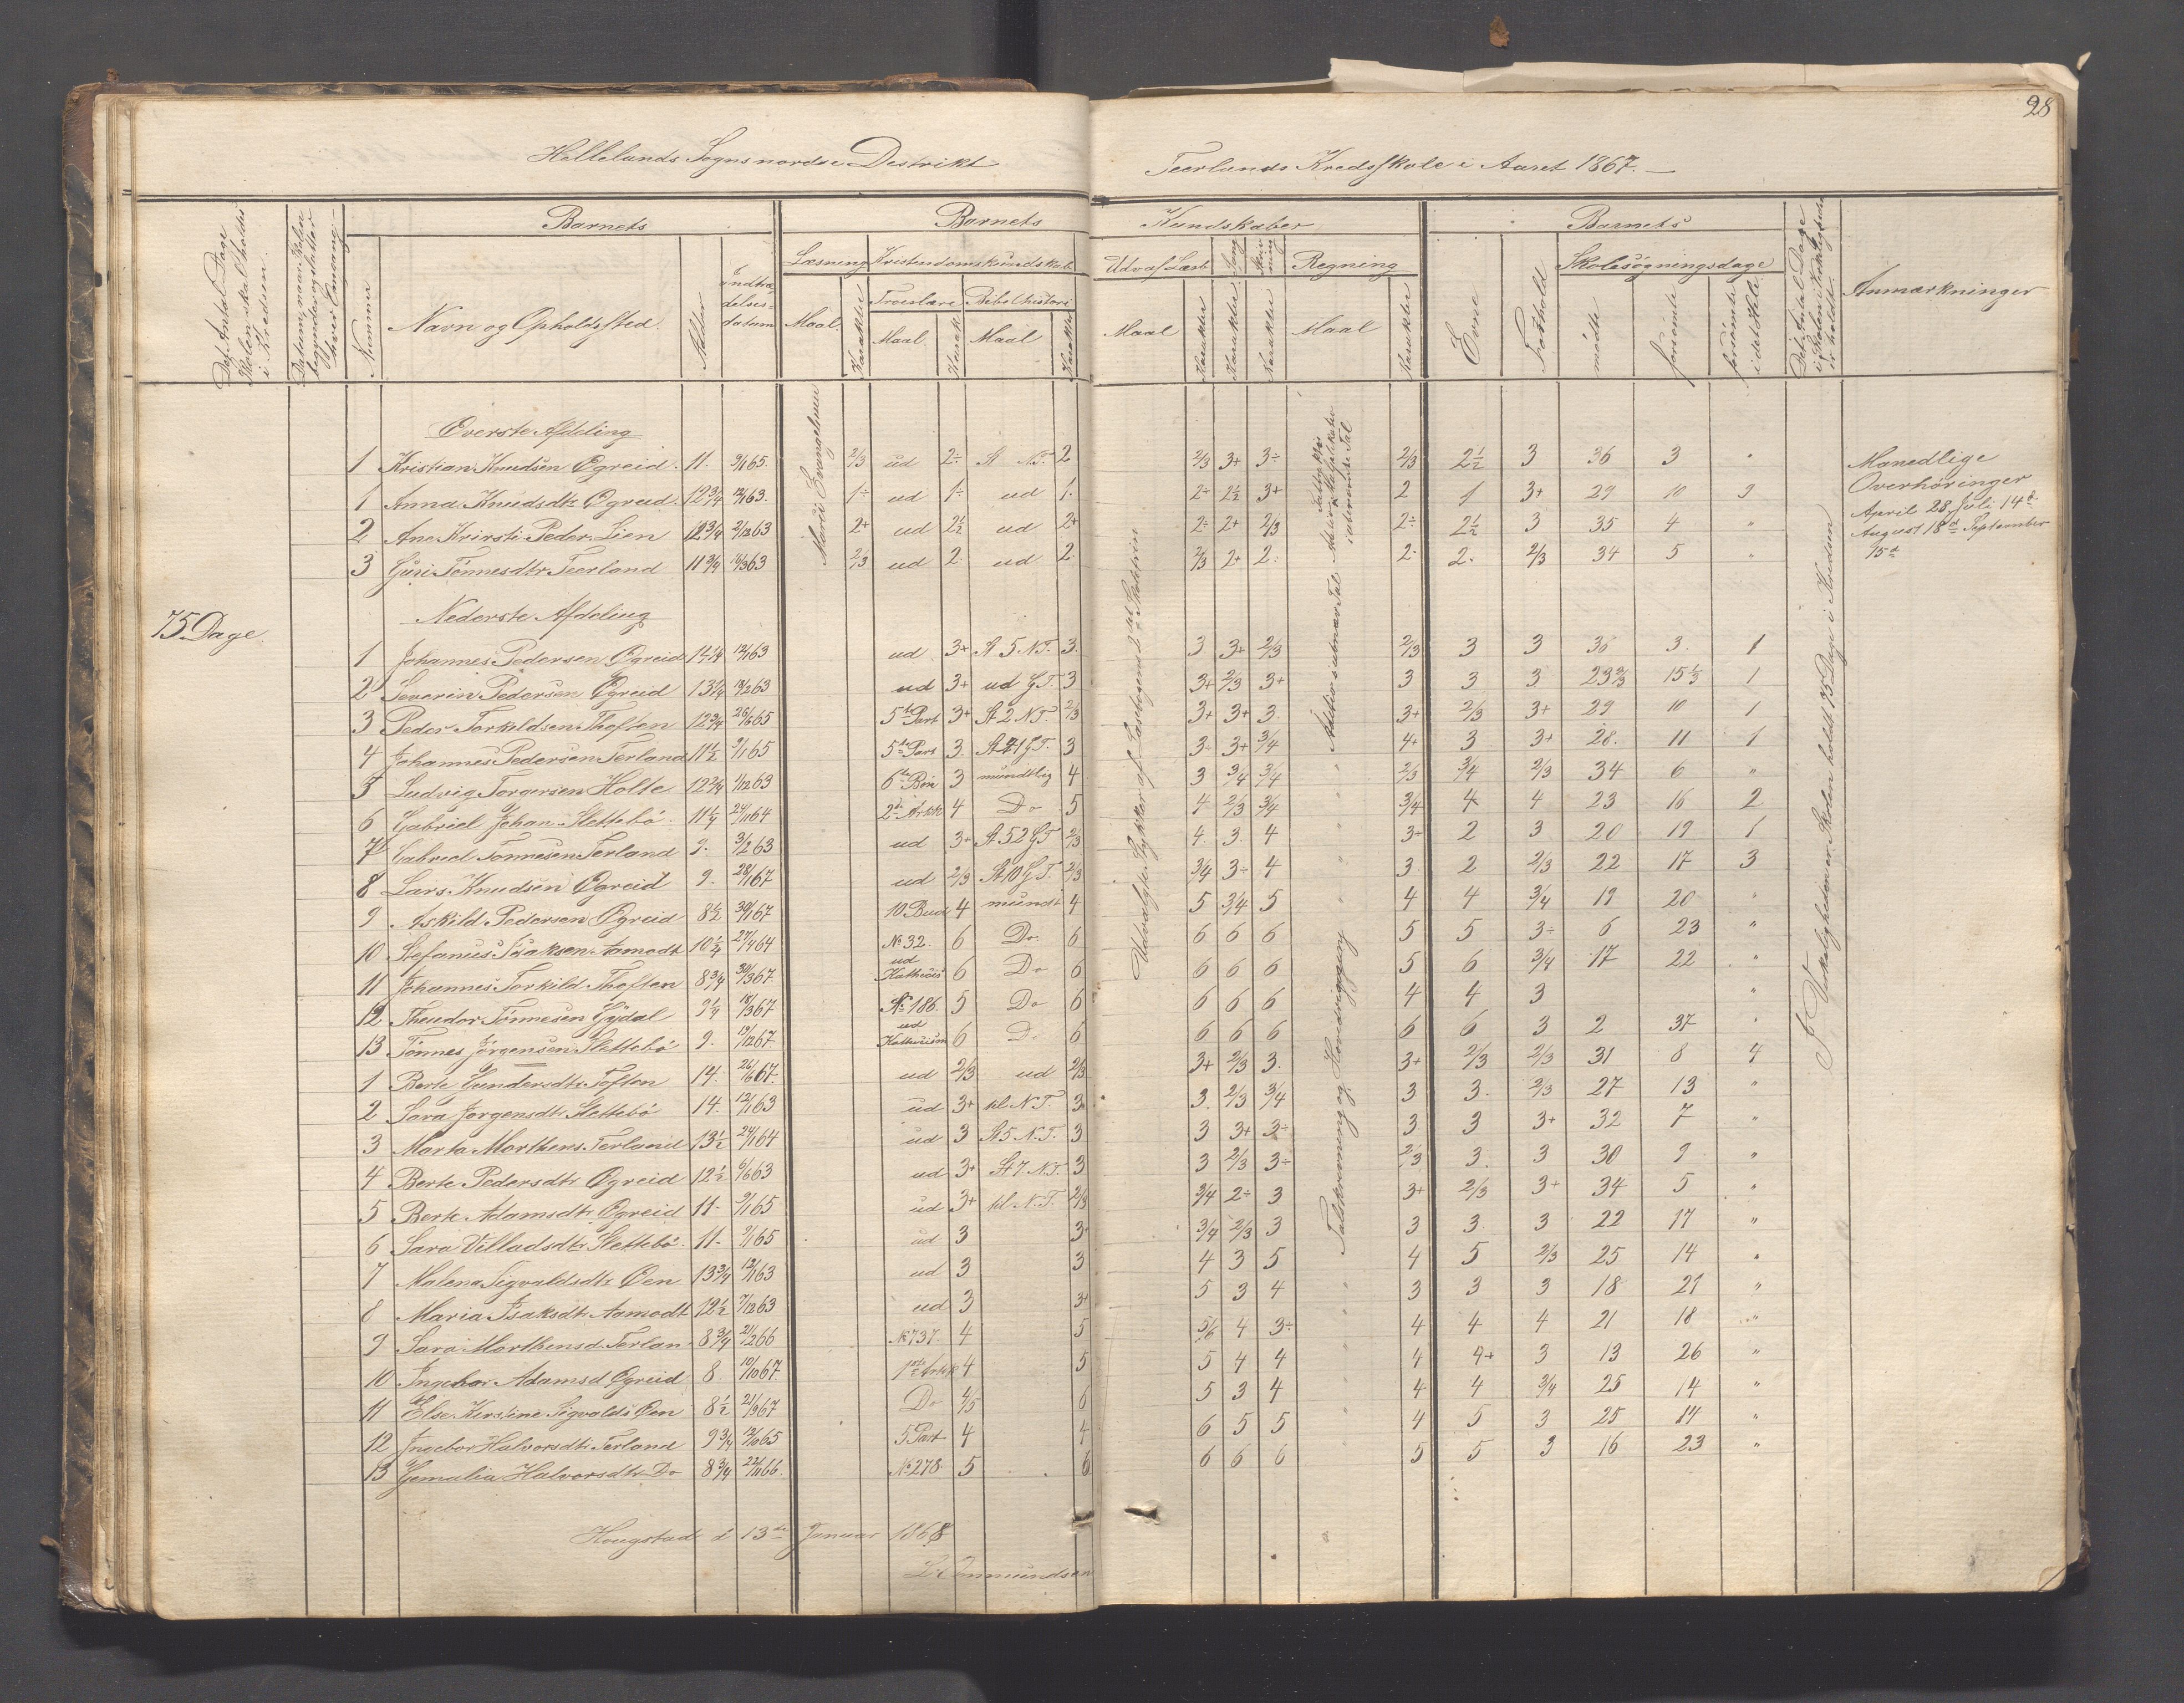 28
Hellelands Sogns nordre Destrikt
Teerlands Kredsskole i Aaret 1867.
Det Antal Dage Skolen skal holdes i Kredsen.
Datum, naar Skolen begynder og slutter hver Omgang
Barnets
Nummer
Navn og Opholdssted.
Alder
Indtrædelsesdatum
Barnets Kundskaber
Læsning
Kristendomskundskab
Udvalg af Læseb.
Sang
Skrivning
Regning
Troeslære
Bibelhistori
Maal
Karakter
Barnets
Evne
Forhold
Skolesøgningsdage
mødte
forsømte
forsømte i det Hele
Det Antal Dage Skolen i Virkeligheden er holdt
Anmærkninger
Everste Afdeling
1 Kristian Knudsen Øgreid 11. 9/1 65. 2/3 ud 2÷ St N.T. 2 2/3 3+ 3÷ 2/3 2½ 3 36 3 "
1 Anna Knudsdtr Øgreid 12¾ 12/1 63. 1÷ ud 1÷ ud 1. 2÷ 2½ 3+ 2 1 3+ 29 10 9
2 Ane Kristi Peder. Lien 12¾ 2/12 63 2+ ud 2½ ud 2+ 2÷ 2+ 2/3 2÷ 2½ 3 35 4 "
3 Guri Tønnesdtr Teerland 11¾ 14/3 63 2/3 ud 2. ud 2. 2/3 2+ 2. 2- 2. 2/3 34 5 "
Marci Evangelium
Manedlige Overhøringer
April 28, Juli 14d
August 18d September
15d
75 Dage.
Nederste Afdeling
1 Johannes Pedersen Øgreid 14¼ 12/1 63 ud 3+ St 5 N.T. 3. 3 3+ 2/3 2/3 3 3 36 3. 1
2 Severin Pedersen Øgreid 13¼ 13/2 63 ud 3+ ud G.T. 3 3+ 2/3 3+ 3 3 3 23⅔ 15⅓ 1
3 Peder Torkildsen Thoften 12¾ 26/6 65 5te Part 3+ St 2 N.T. 2/3 3+ 3+ 3. 3+ 2/3 3+ 29 10 1
4 Johannes Pedersen Terland 11½ 9/1 65 5te Part 3. St 21 G.T. 3 3÷ 3+ 3/4 4+ 3 3+ 28. 11 1
5 Ludvig Torgersen Holte 12¾ 1/12 63 6te Bøn 3 mundtlig 4 3 3/4 3/4 2/3 3/4 2/3 34 6 "
6 Gabriel Johan. Slettebø 11¼ 24/11 64 2den Artik 4 Do 5 4 2/3 3/4 3/4 4 4 23 16 2
7 Gabriel Tønnesen Terland 9. 3/2 63 ud 3+ St 52 G.T. 2/3 4. 3. 4 3÷ 2 3 20 19 1
8 Lars Knudsen Øgreid 9. 28/1 67 ud 2/3 St 10 G.T. 2/3 3/4 3÷ 4 3. 2 2/3 22 17 3
9 Askild Pedersen Øgreid 8½ 30/1 67 10 Bud 4 mundt 4 5 3/4 5 4 4 3/4 19 20 "
10 Stefanus Isaksen Aamodt 10½ 27/4 64 No 32. 6 Do 6 6 6 6 5 5 3÷ 6 23 "
11 Johannes Torkild. Thoften 8¾ 30/3 67. ud Kathecis 6 Do 6 6 6 6 5 6 3/4 17 22 "
12 Theodor Tønnesen Gydal 9¼ 18/3 67 No 186. 5 Do 6 6 6 6 4 4 3 "
13 Tønnes Jørgensen Slettebø 9. 19/12 67 ud Kathecism 6 Do 6 6 6 6 6 6 3 2 37 "
1 Berte Gundersdtr Toften 14. 26/6 67. ud 2/3 ud 2/3 3+ 2/3 3. 3+ 2/3 2/3 31 8 4
2 Sara Jørgensdtr Slettebø 14. 12/1 63 ud 3+ kl N.T. 3. 3. 2/3 3/4 3 3. 2/3 27 13 "
3 Marta Morthens. Terland 13½ 24/1 64 ud 3 St 5 N.T. 3 3 3+ 3÷ 3 3 3+ 32 7 "
4 Berte Pedersdtr Øgreid 12½ 6/6 63 ud 3+ St 7 N.T. 3 3 2/3 3÷ 2/3 3. 3 30 9 "
5 Berte Adamsdtr Øgreid 11. 9/1 65 ud 3+ kl N.T. 2/3 3/4 2÷ 3 3+ 2/3 3+ 34 5 "
6 Sara Villadsdtr Slettebø 11. 9/1 65 ud 3 3÷ 3/4 2/3 3 3 3. 3 22 17 "
7 Malena Sigvaldsdtr Øen 13¾ 12/1 63 ud 3 3 4 3 5 4 5 2/3 25 14 "
8 Maria Isaksdtr Aamodt 12½ 7/12 63 ud 3 3+ 5 3 4 3 3 3 18 21 "
9 Sara Morthensd. Terlan 8¾ 21/2 66 No 737. 4 5 5/6 4 3÷ 4 4 4 21 18 "
10 Ingebor Adamsd Øgreid 8. 10/10 67. 1ste Artik 4 5 5 4 4 4 4+ 3 13 26 "
11 Else Kirstine Sigvalds Øen 8½ 21/9 67 Do 4/5 6 5 3 4 4 4 3/4 25 14 "
12 Ingebor Halvorsdtr Terland 9¾ 12/10 65 5 Part 4 4 6 5 5 4 5 3 25 14 "
13 Gemalia Halvorsdtr Do 8¾ 22/11 66. No 278. 5 6 6 6 6 5 5 3 16 23 "
Udvalgte Stykker af Læsebogens 2det Skoletrin
Talskrivning og Hovedregning
Additio i ubenævnt Tal
I Virkeligheden er Skolen holdt 75 Dage i Kredsen
Hougstad d 13de Januar 1868
L. Ommundsen